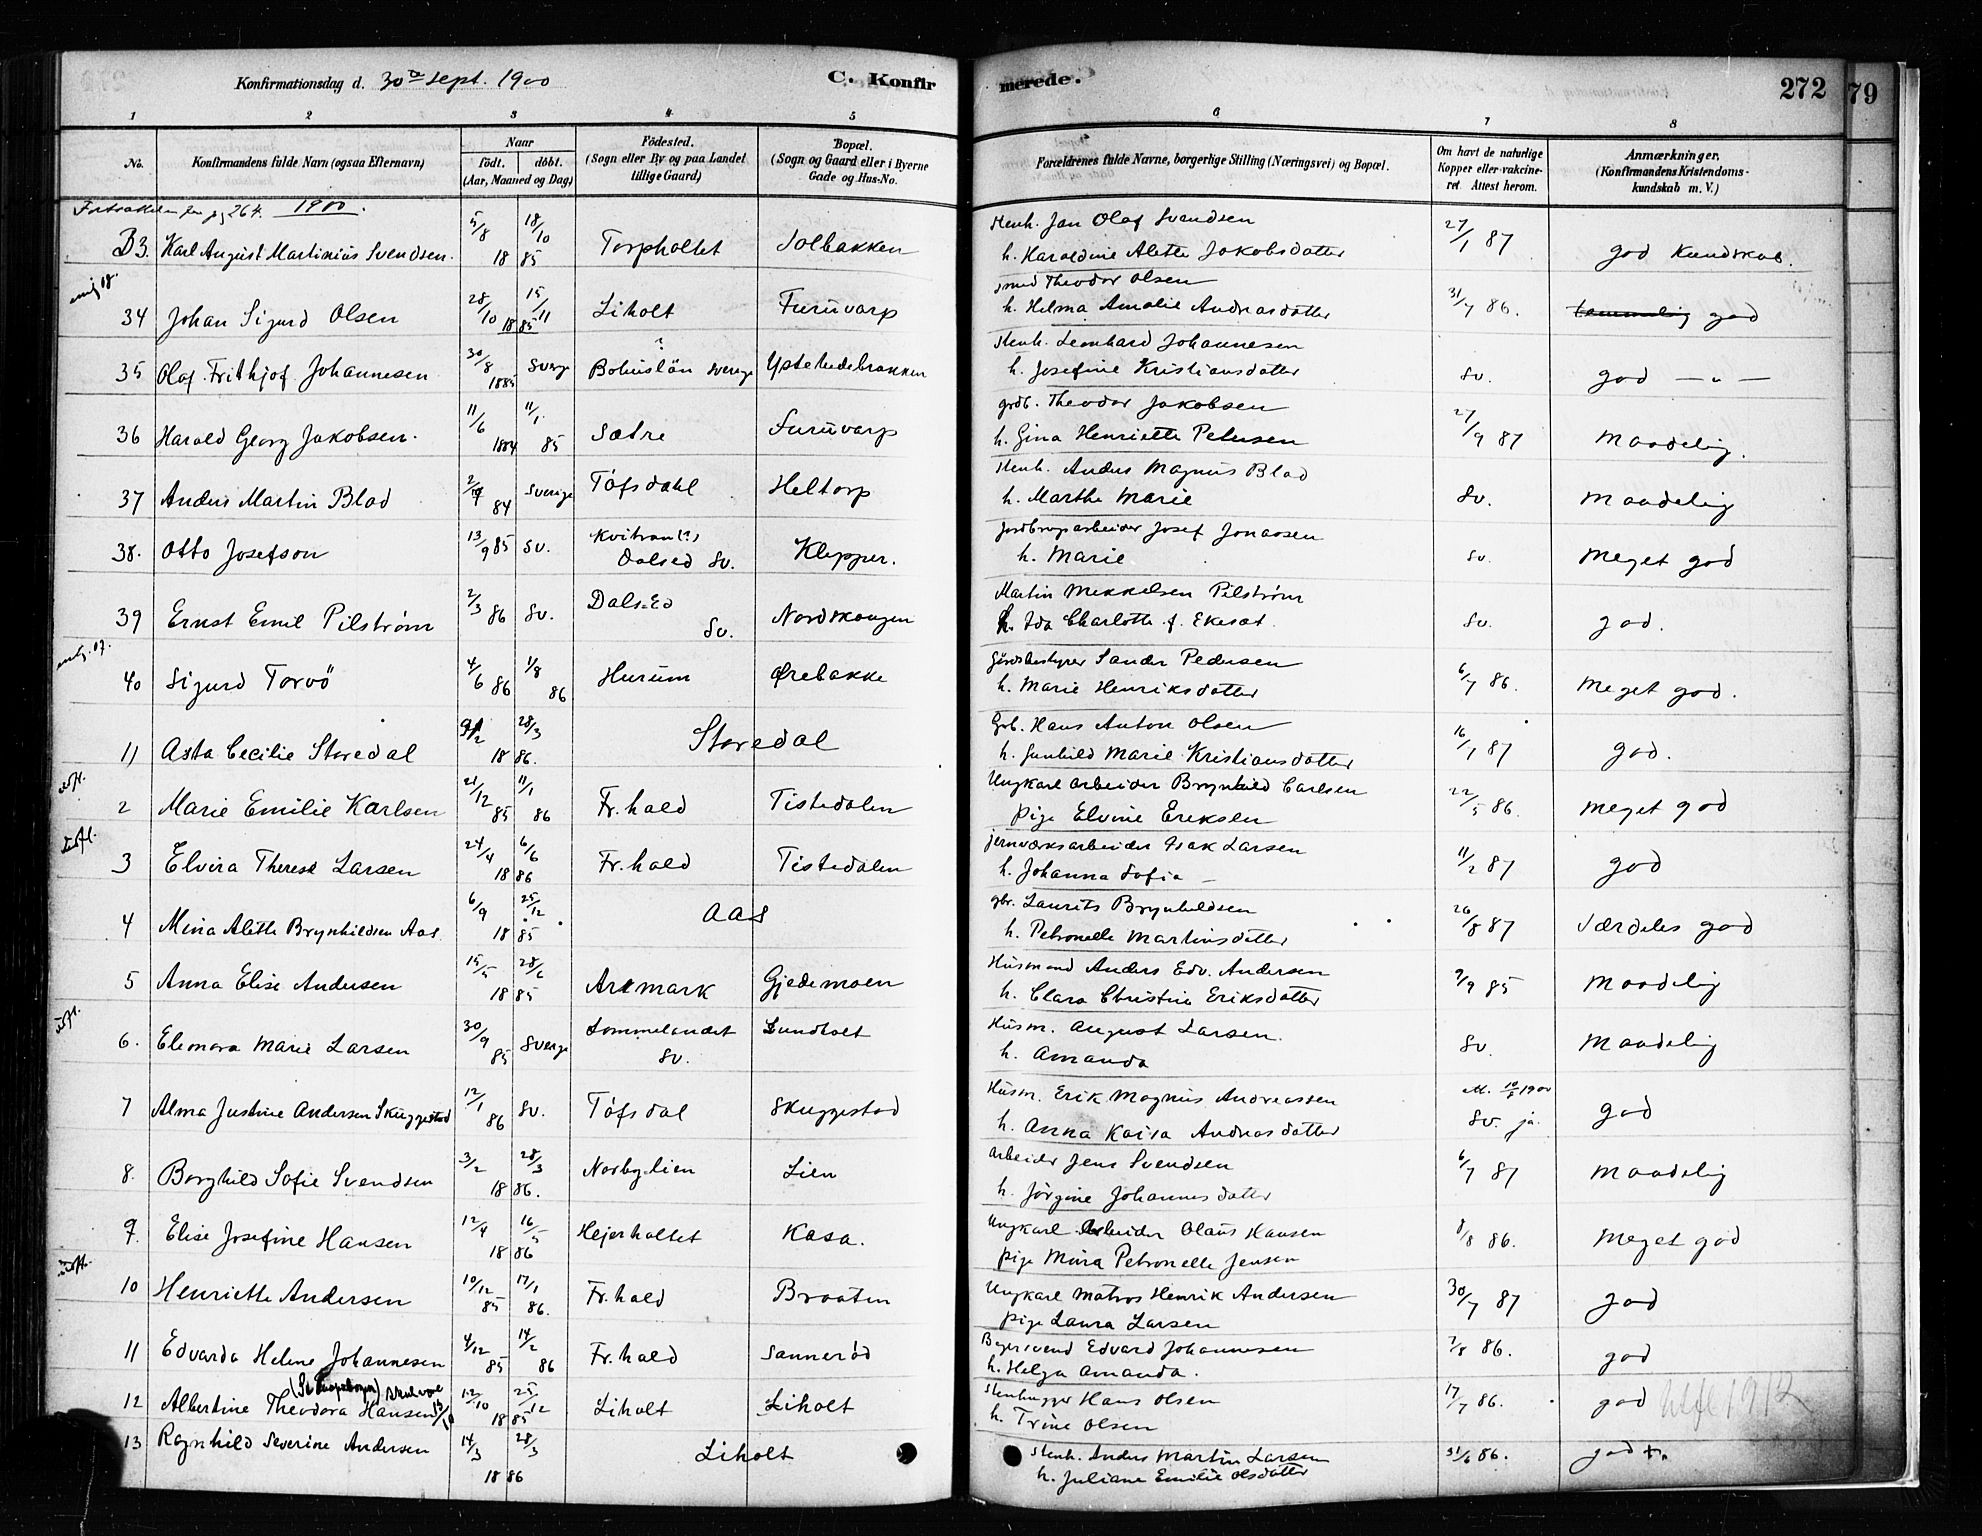 Konfirmationsdag d. 30te Sept. 1900 C. Konfir
merede. 272 79
1 2 3 4 5
6 7 8
No. Konfirmandens fulde Navn (ogsaa Efternavn) Naar født. døbt. (Aar, Maaned og Dag) Fødested. (Sogn eller By og paa Landet tillige Gaard) Bopæl. (Sogn og Gaard eller i Byerne Gade og Hus-No.
Forældrenes fulde Navne, borgerlige Stilling (Næringsvei) og Bopæl. Om havt de naturlige Kopper eller vakcineret. Attest herom. Anmærkninger. (Konfirmandens Kristendomskundskab m. V.)
pag 264. 1900.
33. Karl August Martinius Svendsen. 5/8 18/10 1885 Torpholtet Solbakken
Stenh. Jan Olaf Svendsen
h. Karoldine Alette Jakobsdatter 27/1 87 god Kundskab.
34 Johan Sigurd Olsen 28/10 15/11 1885 Liholt Furuvarp
smed Theodor Olsen
h. Helma Amalie Andreasdatter 31/7 86. temmelig god
35 Olaf Frithjof Johannesen 30/8 1885 Sverige Bohuslän Sverige ? Ystehedebrakken
Stenh. Leonhard Johannesen
h. Josefine Kristiansdatter Sv. god — " —
36 Harald Georg Jakobsen. 11/6 1884 11/1 85 Sætre Furuvarp
grdb. Theodor Jakobsen
h. Gina Henriette Petersen 27/9 87 Maadelig.
37 Anders Martin Blad 84 Sverige Töfsdahl Heltorp
Stenh. Anders Magnus Blad
h. Marthe Marie Sv. Maadelig
38. Otto Josefson 13/9 85 Sv. Kvitran(?) Dalsed Sv. Klepper.
Jordbrugsarbeider Josef Jonassen
h. Marie Sv. Meget god
39 Ernst Emil Pilstrøm 2/3 86 Sv. Dals-Ed Sv. Nordskougen
Martin Mekkelsen Pilstrøm
h. Ida Charlotte f. Ekesæt. Sv. god.
40 Sigurd Torvö 4/6 86 1/8 86 Hurum Ørebakke
Gårdsbestyrer Sander Pedersen
h. Marie Henriksdatter 6/7 86. Meget god.
1) Asta Cecilie Storedal 28/3 1886. Storedal
Grb. Hans Anton Olsen
h. Gunhild Marie Kristiansdatter 16/1 87 god.
2 Marie Emilie Karlsen 21/12 85 11/1 86 Fr.hald Tistedalen
Ungkarl arbeider Brynhild Carlsen
pige Elvine Eriksen 22/5 86. meget god
3 Elvira Therese Larsen 24/4 6/6 1886 Fr.hald Tistedalen
jernværksarbeider Isak Larsen
h. Johanna Sofia — 11/2 87 god
4 Mina Alette Brynhildsen Aas. 6/9 25/12 1885 Aas
gbr. Laurits Brynhildsen
h. Petronelle Martinsdatter 26/8 87 Særdeles god
5 Anna Elise Andersen 15/5 28/6 1885 Aremark Gjedemoen
Husmand Anders Edv. Andersen
h. Clara Christine Eriksdatter 9/9 85 Maadelig
6. Elenora Marie Larsen 30/9 85 Sverige Lommelandet Sv. Lundholt
Husm. August Larsen.
h. Amanda Sv. Maadelig
7 Alma Justine Andersen Skuggestad 12/1 86 Sv. Töfsdal Skuggestad
Husm. Erik Magnus Andreassen
h. Anna Kaisa Andreasdatter Sv. ja. god
8. Borghild Sofie Svendsen 3/2 28/3 1886. Norbylien Lien
Arbeider Jens Svendsen
h. Jörgine Johannesdatter 6/7 87 Maadelig
9. Elise Josefine Hansen 12/4 16/5 1886 Hejerholtet Kasa.
Ungkarl Arbeider Olaus Hansen
pige Mina Petronelle Jensen 8/8 86. Meget god
10 Henriette Andersen 10/12 85 17/1 86. Fr.hald Braaten
Ungkarl Matros Henrik Andersen
pige Laura Larsen 30/7 87 god
11 Edvarda Helene Johannesen 4/12 85 14/2 86 Fr.hald Sannerød
Bagersvend Edvard Johannesen
h. Helga Amanda. 7/8 86. god
12 Albertine Theodora Hansen 12/10 25/12 1885 Liholt Liholt
Stenhugger Hans Olsen
h. Trine Olsen 17/7 86. god 1912
13 Ragnhild Severine Andersen 14/3 28/3 1886 Liholt
Stenh. Anders Martin Larsen
h. Juliane Emilie Olsdatter 31/6 86. god +.